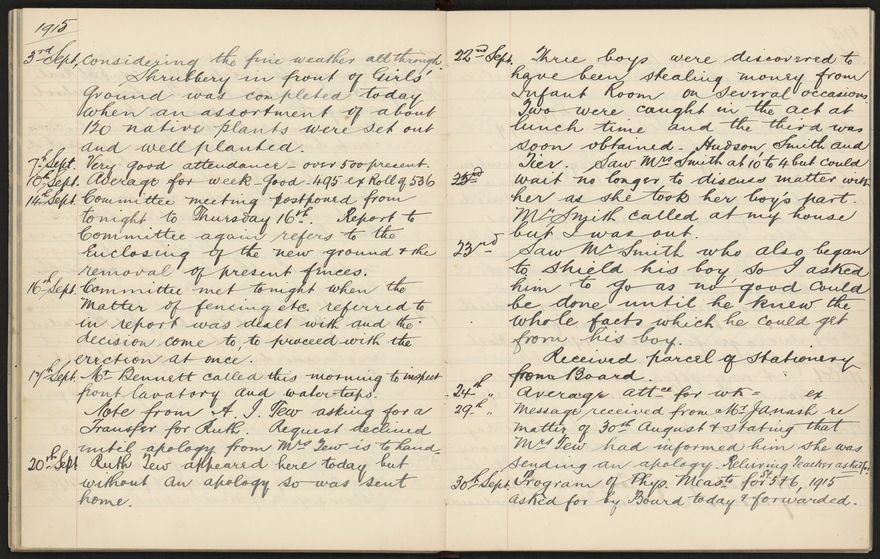 1915
3rd Sept. Considering the fine weather all through.
Shrubbery in front of Girls'
Ground was completed today
when an assortment of about
120 native plants were set out
and well planted.
7th Sept. Very good attendance - over 500 present.
10th Sept. Average for week - Good - 495 ex Roll of 536
14th Sept. Committee meeting postponed from
tonight to Thursday 16th. Report to
Committee again refers to the
Enclosing of the new ground & the
removal of present fences.
16th Sept. Committee met tonight when the
Matter of fencing etc. referred to
in report was dealt with and the
decision come to to proceed with the
erection at once.
17th Sept. Mr Bennett called this morning to inspect
front lavatory and water-taps.
Note from A. J. Tew asking for a
Transfer for Ruth. Request declined
until apology from Mrs Tew is to hand.
20th Sept Ruth Tew appeared here today but
without an apology so was sent
home.
22nd Sept. Three boys were discovered to
have been stealing money from
Infant Room on several occasions
Two were caught in the act at
lunch time and the third was
soon obtained - Hudson, Smith and
Tier. Saw Mrs Smith at 10 to 4 but could
23rd wait no longer to discuss matter with
her as she took her boy's part.
Mr Smith called at my house
but I was out.
23rd Saw Mr Smith who also began
to shield his boy so I asked
him to go as no good could
be done until he knew the
whole facts which he could get
from his boy.
Received parcel of Stationery
from Board.
24th " Average attce for wk = ex
29th " Message received from Mr Janash re
matter of 30th August & stating that
Mrs Tew had informed him she was
sending an apology. Relieving Teacher asked for.
30th Sept. Program of Phys. Measts for S5 & 6, 1915
asked for by Board today & forwarded.